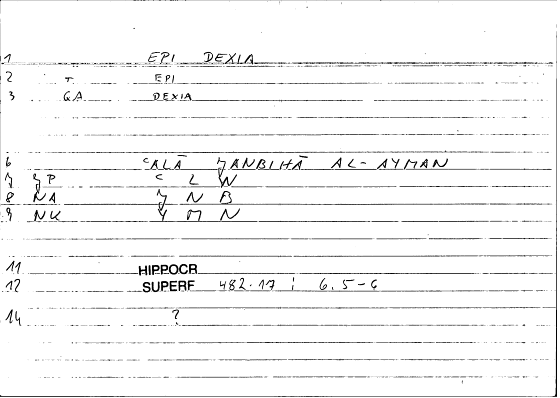 1 EPI DEXIA
2 T. EPI
3 GA DEXIA
6 ʿALĀ ǦANBIHĀ AL-AYMAN
7 ǦP ʿ L W
8 NA Ǧ N B
9 NK Y M N
11 HIPPOCR
12 SUPERF 482.17 ; 6.5-6
14 ?